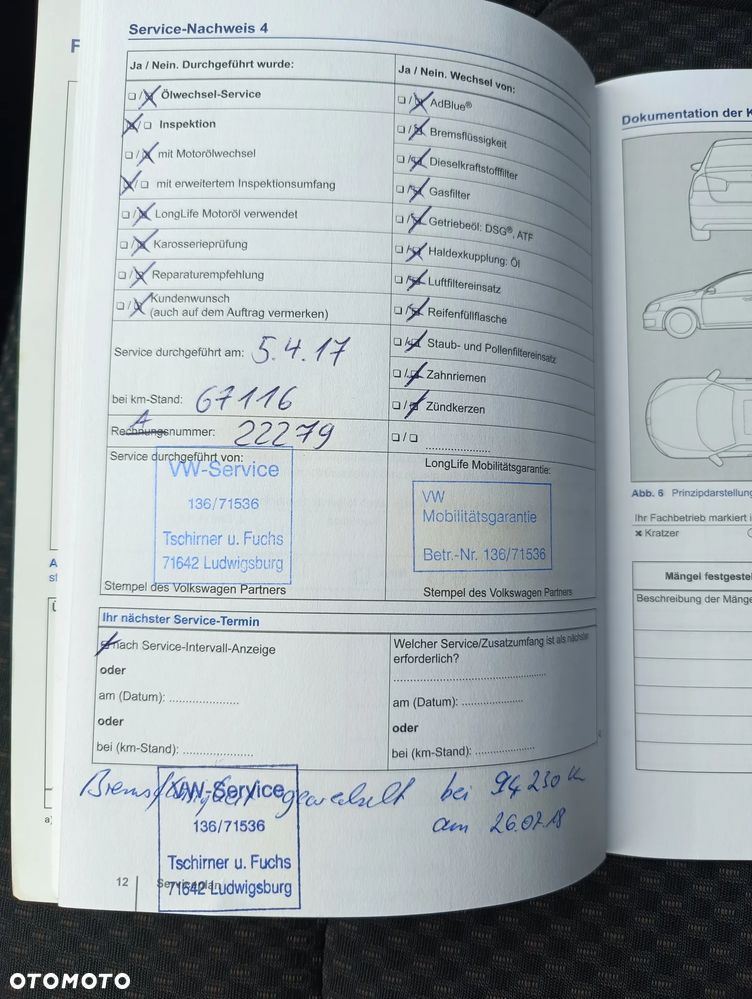 Service-Nachweis 4
Ja / Nein. Durchgeführt wurde:
Ölwechsel-Service
Inspektion
mit Motorölwechsel
mit erweitertem Inspektionsumfang
LongLife Motoröl verwendet
Karosserieprüfung
Reparaturempfehlung
Kundenwunsch
(auch auf dem Auftrag vermerken)
Service durchgeführt am: 5.4.17
bei km-Stand: 67116
A
Rechnungsnummer: 22279
Service durchgeführt von:
VW-Service
136/71536
Tschirner u. Fuchs
71642 Ludwigsburg
Stempel des Volkswagen Partners
Ja / Nein. Wechsel von:
AdBlue®
Bremsflüssigkeit
Dieselkraftstofffilter
Gasfilter
Getriebeöl: DSG®, ATF
Haldexkupplung: Öl
Luftfiltereinsatz
Reifenfüllflasche
Staub- und Pollenfiltereinsatz
Zahnriemen
Zündkerzen
LongLife Mobilitätsgarantie:
VW
Mobilitätsgarantie
Betr.-Nr. 136/71536
Stempel des Volkswagen Partners
Ihr nächster Service-Termin
nach Service-Intervall-Anzeige
oder
am (Datum):
oder
bei (km-Stand):
Welcher Service/Zusatzumfang ist als nächster
erforderlich?
am (Datum):
oder
bei (km-Stand):
Bremsflüssigkeit gewechselt bei 94230 km
am 26.07.18
VW-Service
136/71536
Tschirner u. Fuchs
71642 Ludwigsburg
12 Serviceplan
Dokumentation der K
Abb. 6 Prinzipdarstellung
Ihr Fachbetrieb markiert i
Kratzer
Mängel festgestel
Beschreibung der Mänge
F
A
st
a)
OTOMOTO